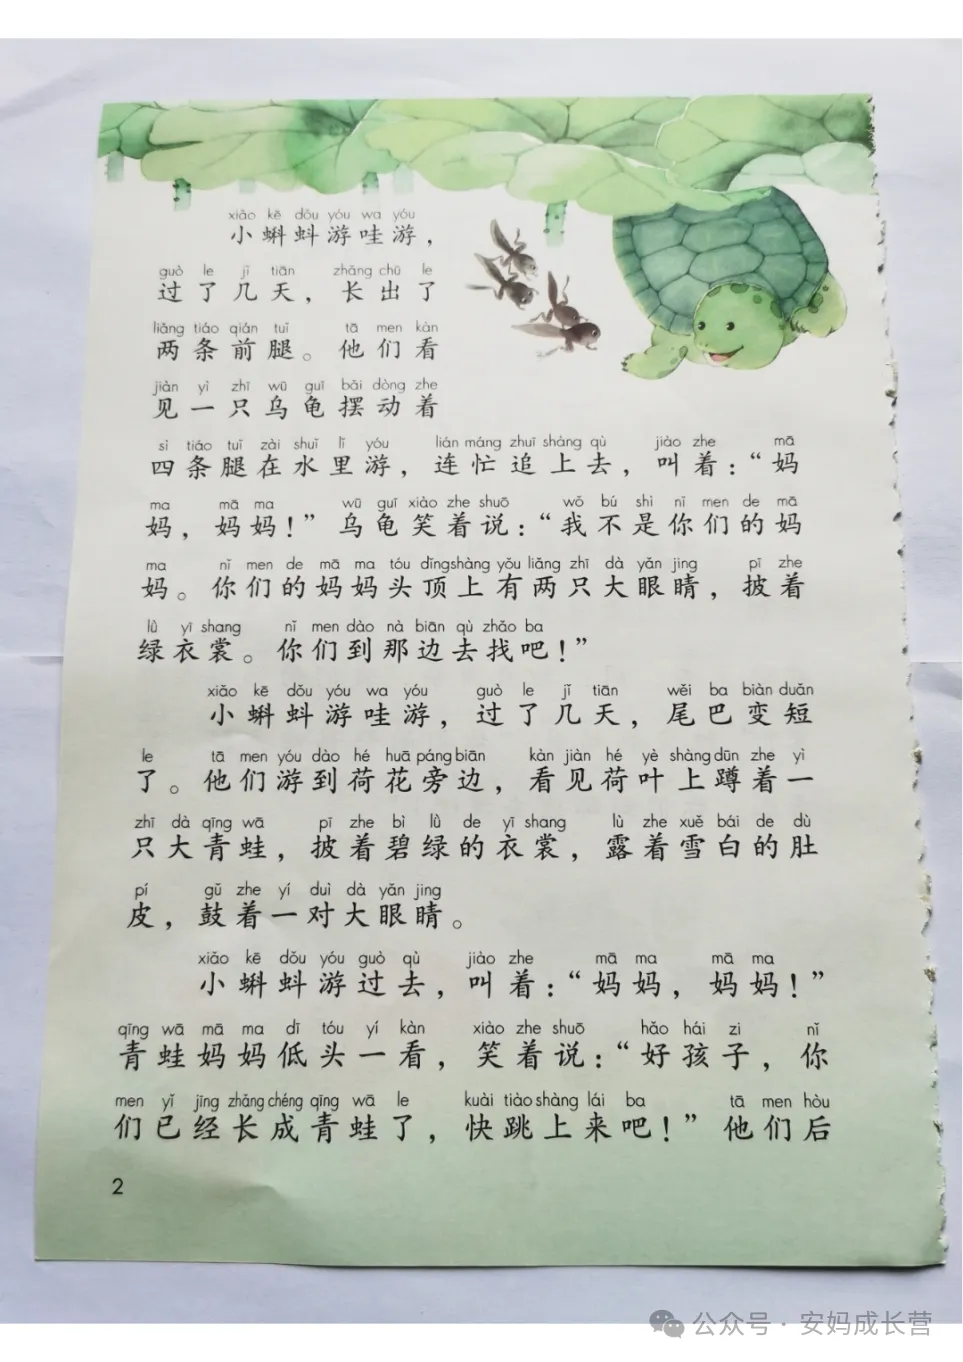 xiǎo kē dǒu yóu wa yóu
小蝌蚪游哇游，
guò le jǐ tiān zhǎng chū le
过了几天，长出了
liǎng tiáo qián tuǐ tā men kàn
两条前腿。他们看
jiàn yì zhī wū guī bǎi dòng zhe
见一只乌龟摆动着
sì tiáo tuǐ zài shuǐ lǐ yóu lián máng zhuī shàng qù jiào zhe mā
四条腿在水里游，连忙追上去，叫着：“妈
ma mā ma wū guī xiào zhe shuō wǒ bú shì nǐ men de mā
妈，妈妈！”乌龟笑着说：“我不是你们的妈
ma nǐ men de mā ma tóu dǐng shàng yǒu liǎng zhī dà yǎn jing pī zhe
妈。你们的妈妈头顶上有两只大眼睛，披着
lǜ yī shang nǐ men dào nà biān qù zhǎo ba
绿衣裳。你们到那边去找吧！”
xiǎo kē dǒu yóu wa yóu guò le jǐ tiān wěi ba biàn duǎn
小蝌蚪游哇游，过了几天，尾巴变短
le tā men yóu dào hé huā páng biān kàn jiàn hé yè shàng dūn zhe yì
了。他们游到荷花旁边，看见荷叶上蹲着一
zhī dà qīng wā pī zhe bì lǜ de yī shang lù zhe xuě bái de dù
只大青蛙，披着碧绿的衣裳，露着雪白的肚
pí gǔ zhe yí duì dà yǎn jing
皮，鼓着一对大眼睛。
xiǎo kē dǒu yóu guò qù jiào zhe mā ma mā ma
小蝌蚪游过去，叫着：“妈妈，妈妈！”
qīng wā mā ma dī tóu yí kàn xiào zhe shuō hǎo hái zi nǐ
青蛙妈妈低头一看，笑着说：“好孩子，你
men yǐ jīng zhǎng chéng qīng wā le kuài tiào shàng lái ba tā men hòu
们已经长成青蛙了，快跳上来吧！”他们后
2
公众号·安妈成长营